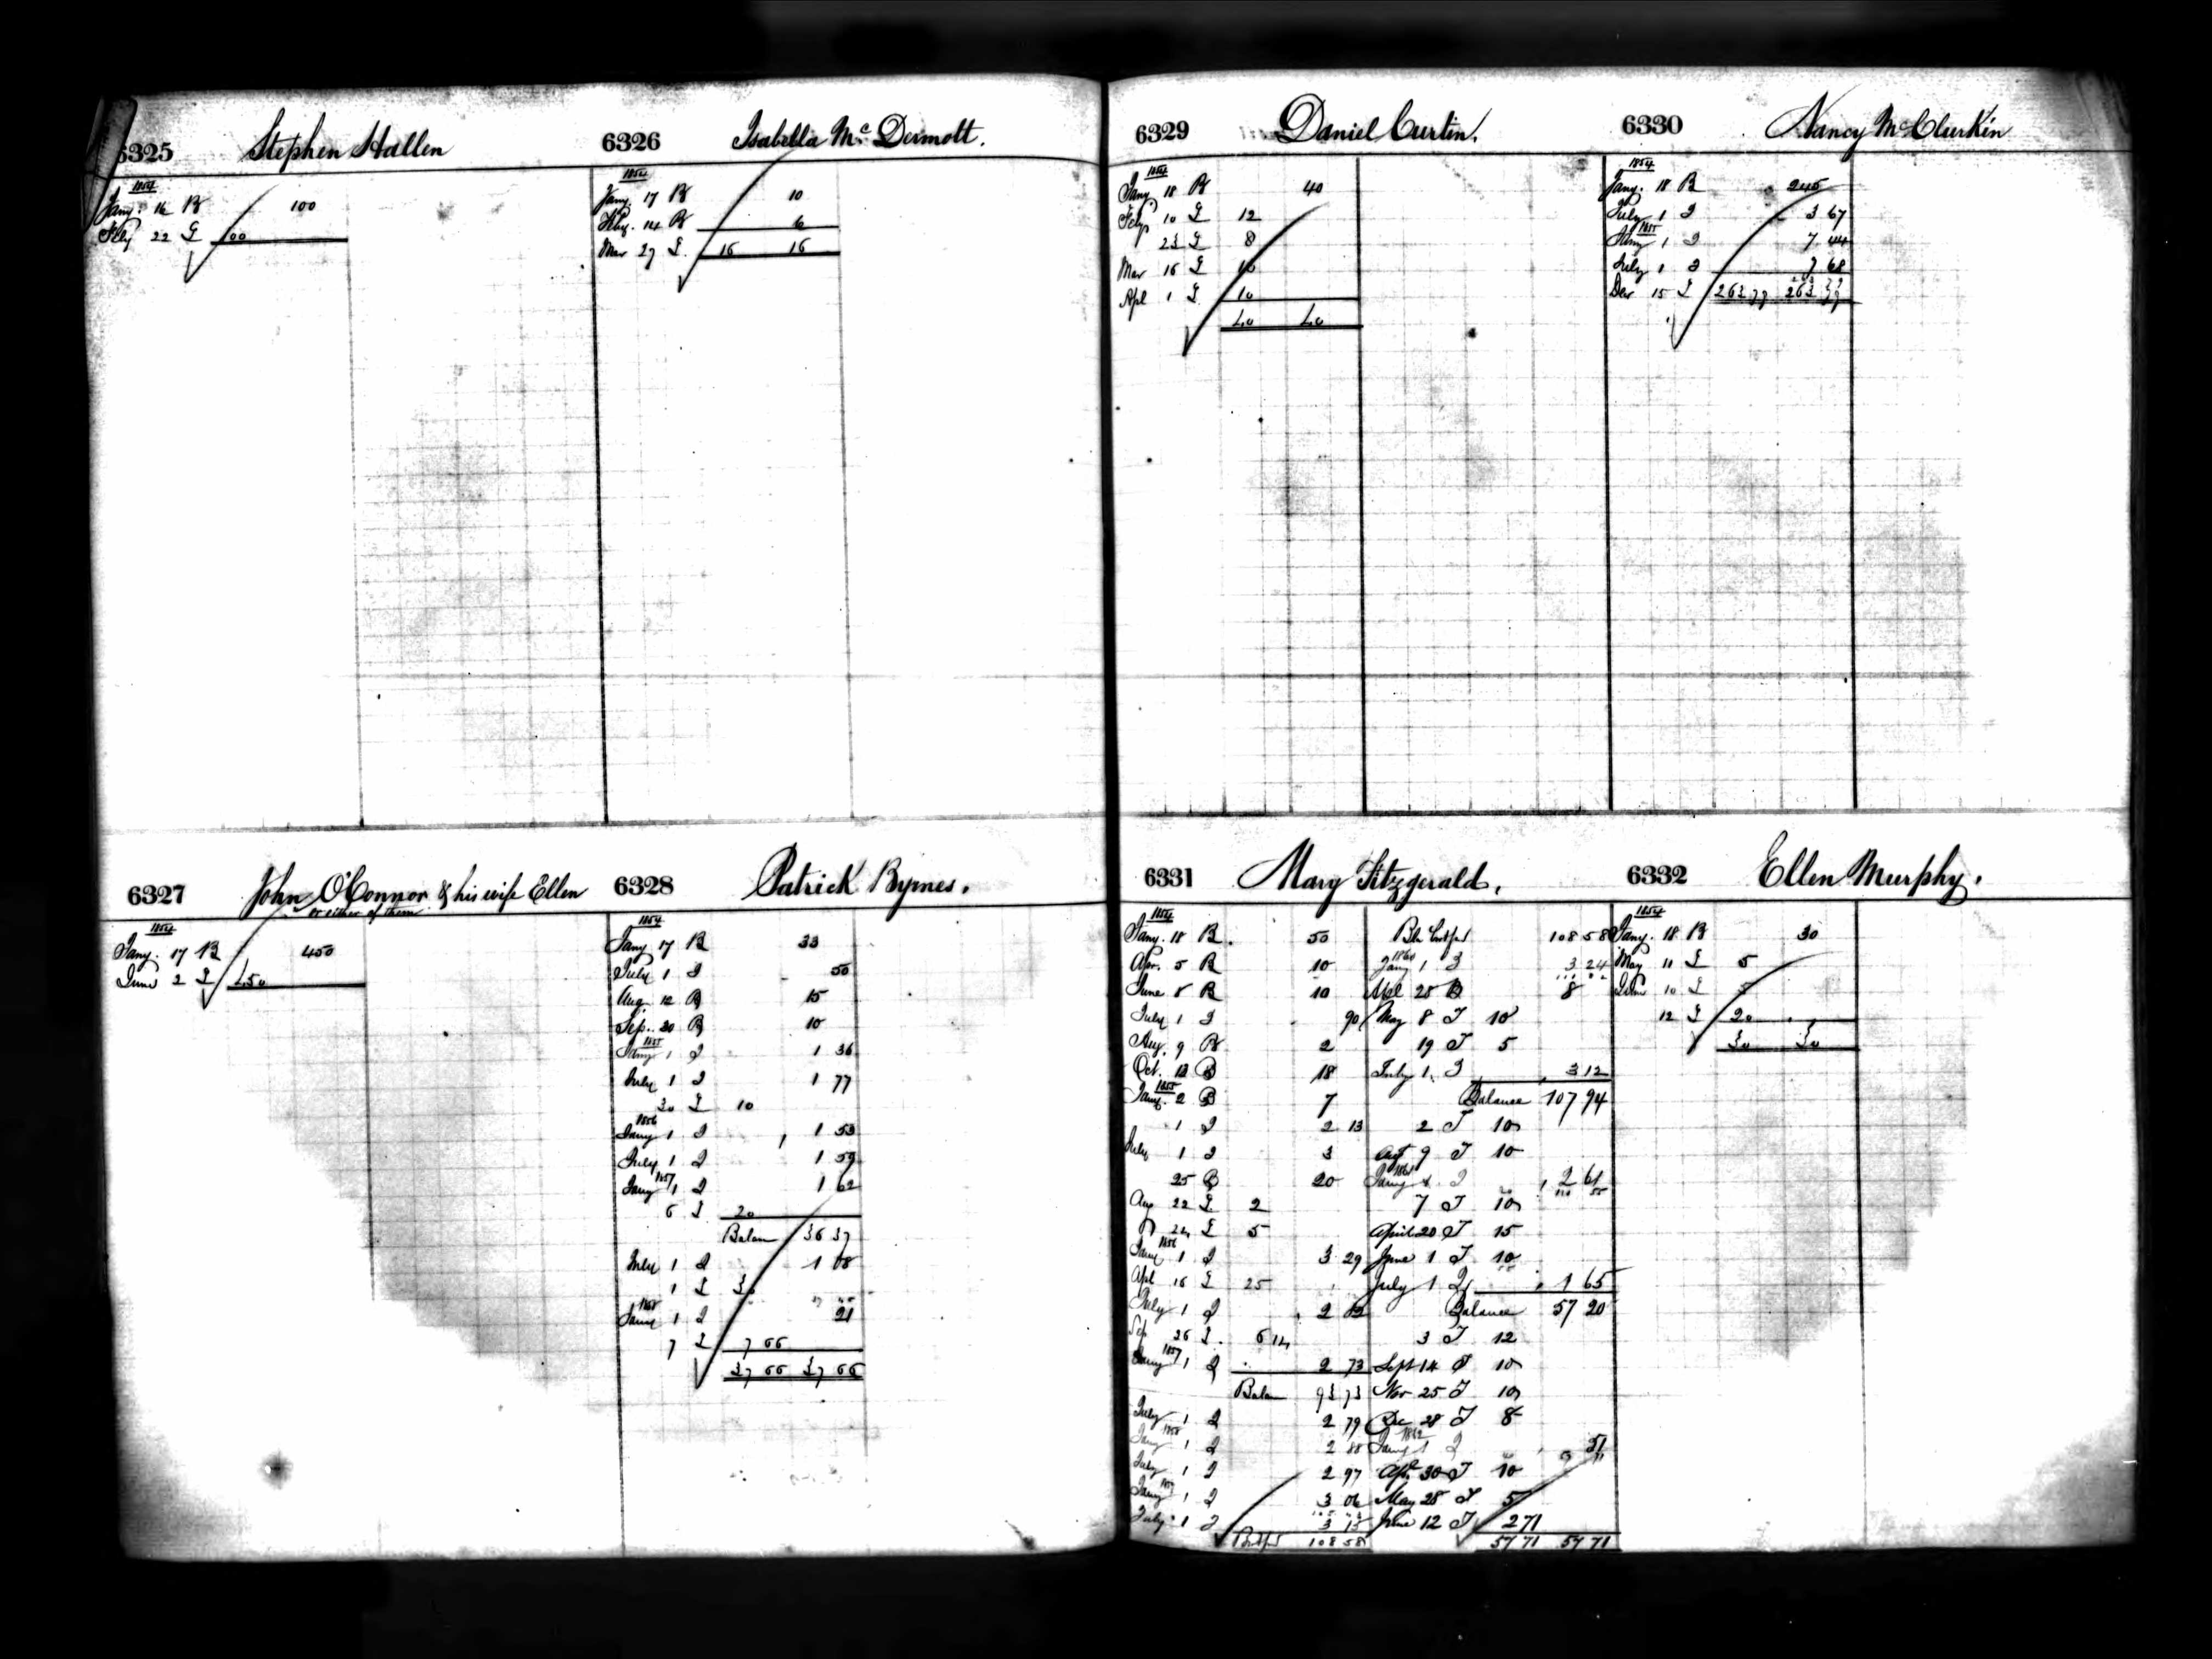 6325 Stephen Hallen
1854
Jany. 16 B 100
Feby 22 L 100
6326 Isabella McDermott.
1854
Jany. 17 B 10
Feby. 14 B 6
Mar 27 L. 16 16
6327 John O'Connor & his wife Ellen
or either of them
1854
Jany. 17 B 450
June 2 L 450
6328 Patrick Byrnes.
1854
Jany 17 B 33
July 1 I 50
Aug. 12 B 15
Sep. 20 B 10
1855
Jany 1 I 1 36
July 1 I 1 77
30 L 10
1856
Jany 1 I 1 53
July 1 I 1 59
1857
Jany 1 I 1 62
6 L 20
Balan 36 37
July 1 I 1 08
1 L 30
1858
Jany 1 I 21
7 L 7 66
37 66 37 66
6329 Daniel Curtin.
1854
Jany. 18 B 40
Feby. 10 L 12
23 L 8
Mar 16 L 10
Apl 1 L 10
40 40
6330 Nancy McClurkin
1854
Jany. 18 B 245
July 1 I 3 67
1855
Jany 1 I 7 44
July 1 I 7 68
Dec 15 L 263 79 263 79
6331 Mary Fitzgerald.
1854
Jany. 18 B. 50
Apr. 5 B 10
June 8 B 10
July 1 I 90
Aug. 9 B 2
Oct. 12 B 18
1855
Jany. 2 B 7
1 I 2 13
July 1 I 3
25 B 20
Aug 22 L 2
24 L 5
1856
Jany 1 I 3 29
Apl 16 L 25
July 1 I
Sep 26 L. 6 14
1857
Jany 1 I 2 73
Balan 93 73
July 1 I 2 79
1858
Jany 1 I 2 88
July 1 I 2 97
1859
Jany 1 I 3 06
July 1 I 3 15
108 58
108 58
1860
Jany 1 I 3 24
Apl 28 B 8
May 8 T 10
19 T 5
July 1. I 3 12
Balance 107 94
2 T 10
9 T 10
1861
Jany 1 I 2 61
7 T 10
April 20 T 15
June 1 T 10
July 1 I 1 65
Balance 57 20
3 T 12
Sept 14 T 10
Nov 25 T 10
Dec 28 T 8
1862
Jany 1 I 51
Apr. 30 T 10
May 28 T 5
June 12 T 2 71
57 71 57 71
6332 Ellen Murphy.
1854
Jany. 18 B 30
May 11 L 5
June 10 L 5
12 L 20
30 30